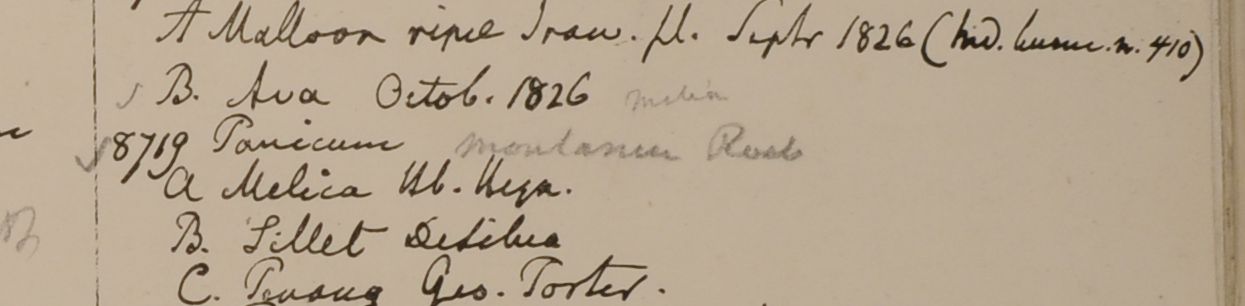 A Malloon ripae Iraw. fl. Septr 1826 (hid. burm. n. 410)
B. Ava Octob. 1826
8719 Panicum montanum Roxb
A Melica Hb. Heyn.
B. Sillet DeSilva
C. Penang Geo. Porter.